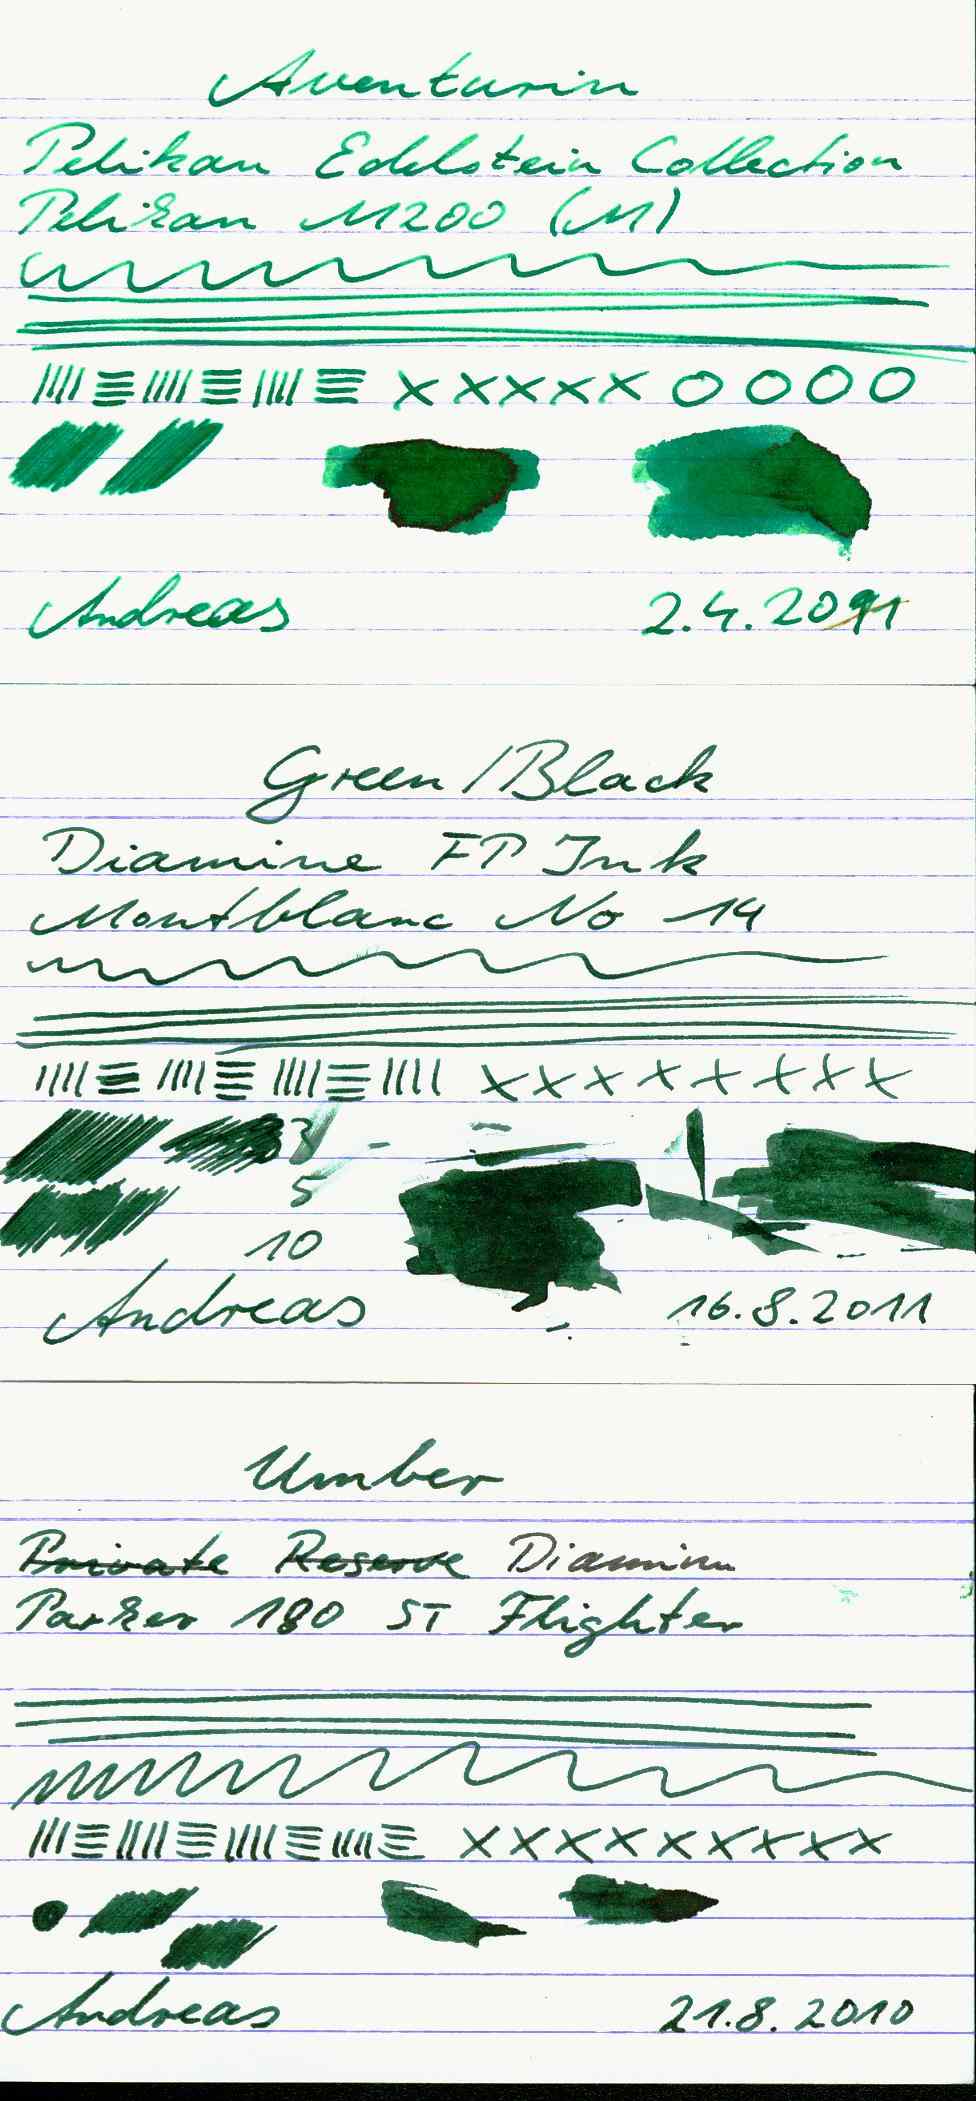 Aventurin
Pelikan Edelstein Collection
Pelikan M200 (M)
Andreas
2.4.2011
Green/Black
Diamine FP Ink
Montblanc No 14
3
5
10
Andreas
16.8.2011
Umber
Private Reserve Diamine
Parker 180 ST Flighter
Andreas
21.8.2010